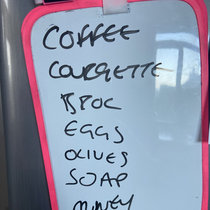 COFFEE
COURGETTE
BROC
EGGS
OLIVES
SOAP
HONEY